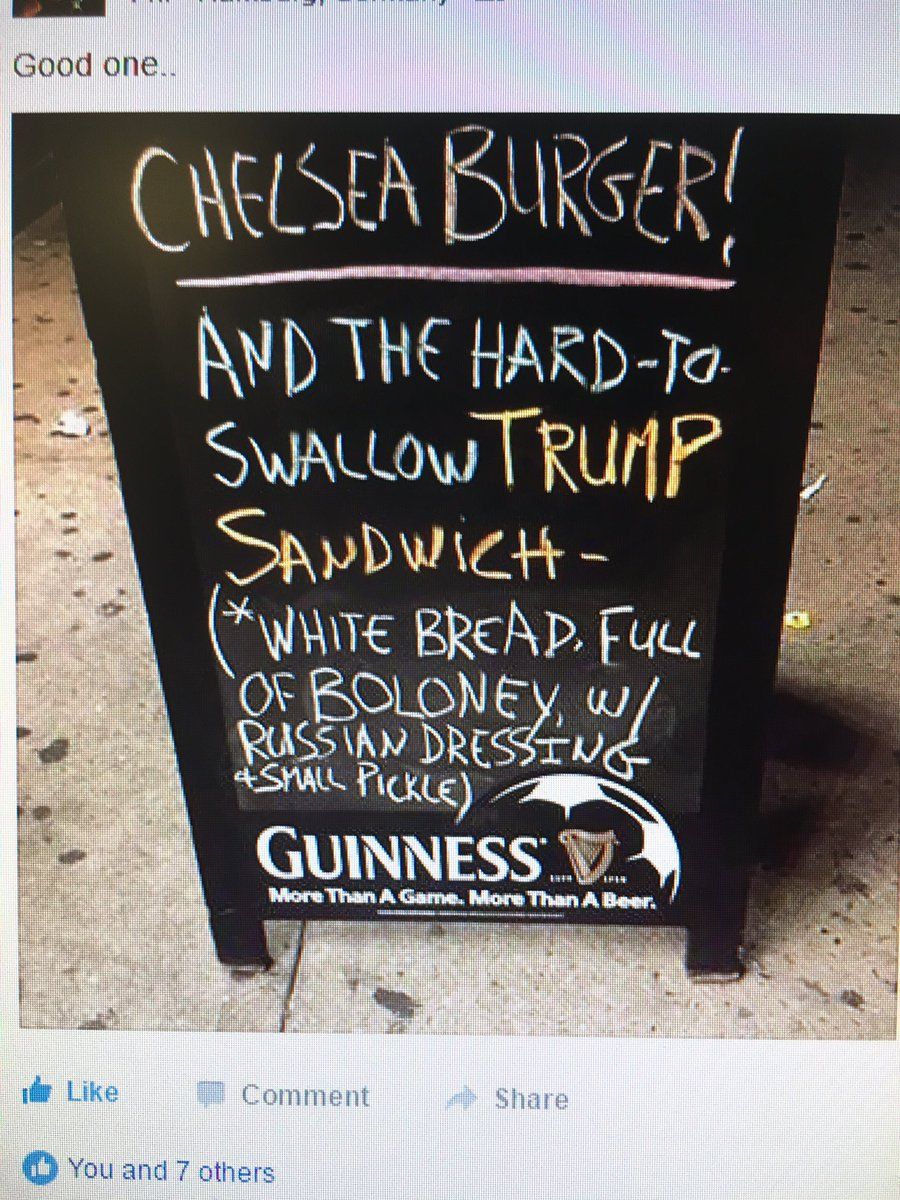 Good one..
CHELSEA BURGER!
AND THE HARD-TO-
SWALLOW TRUMP
SANDWICH-
(*WHITE BREAD, FULL
OF BOLONEY, W/
RUSSIAN DRESSING
+ SMALL PICKLE)
GUINNESS
More Than A Game. More Than A Beer.
Like Comment Share
You and 7 others